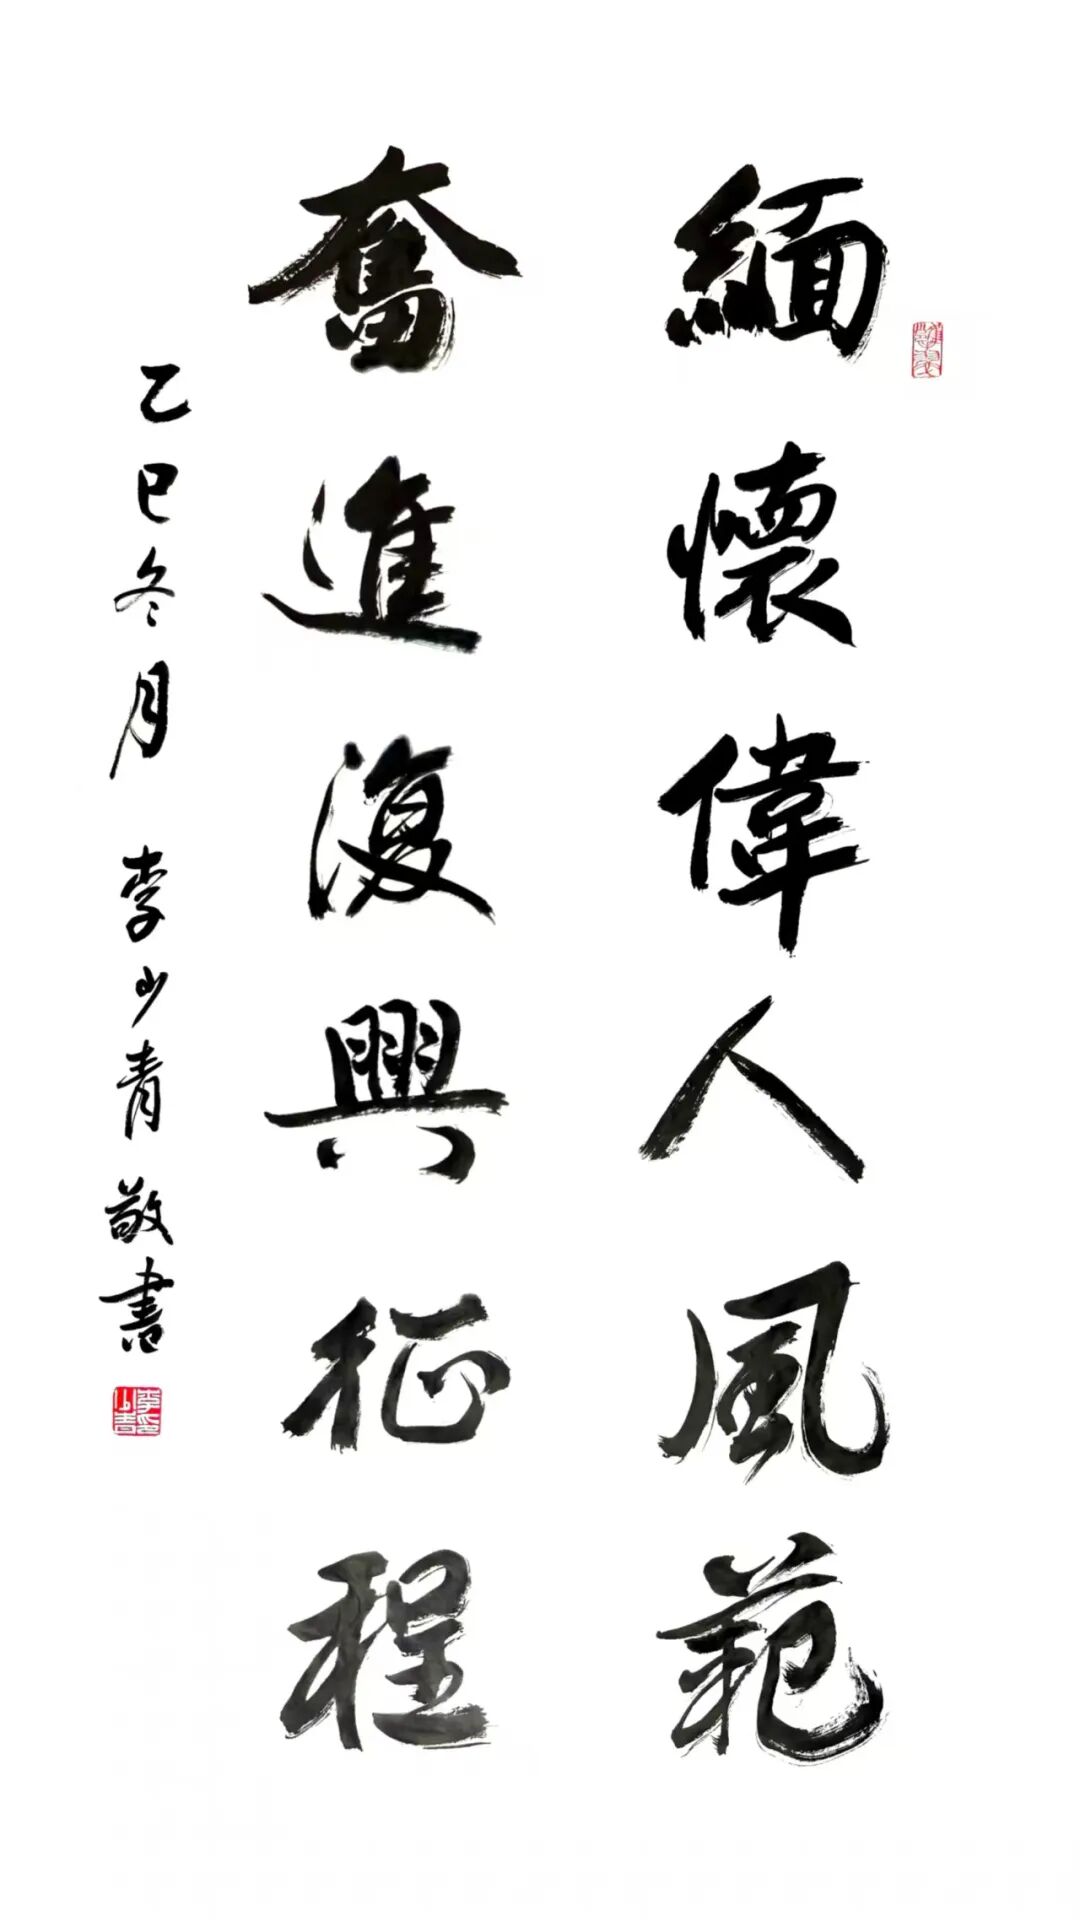 緬懷偉人風範
奮進復興征程
乙巳冬月 李少青 敬書